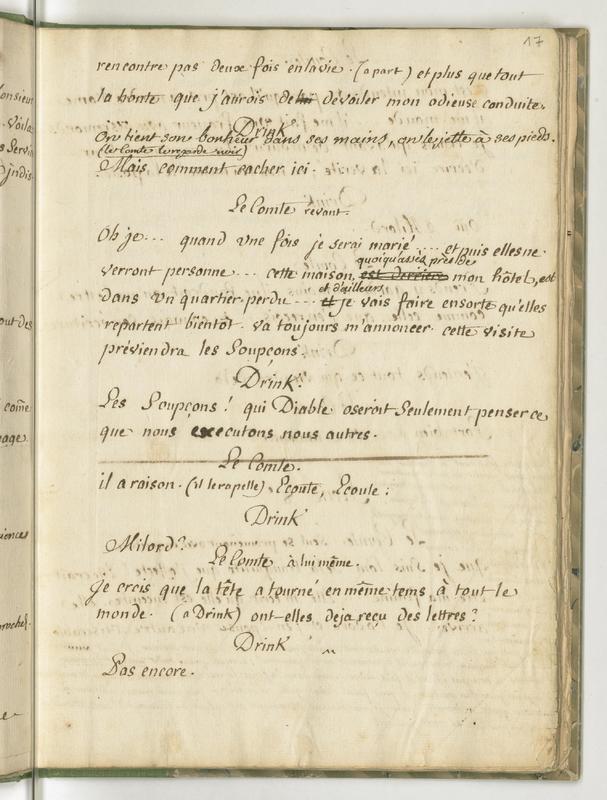 17
rencontre pas deux fois en la vie. (a part) et plus que tout
la honte que j'aurois de lui dévoiler mon odieuse conduite.
Drink
On tient son bonheur dans ses mains, on le jette à ses pieds.
(le Comte le regarde
Mais comment cacher ici.
Le Comte rêvant.
Oh je... quand une fois je serai marié.... et puis elles ne
quoiqu'assès près de
verront personne... cette maison, est derriere mon hôtel, est
et d'ailleurs
dans un quartier perdu... et je vais faire ensorte qu'elles
repartent bientôt. va toujours m'annoncer. cette visite
préviendra les Soupçons.
Drink.
Les Soupçons! qui Diable oseroit Seulement penser ce
que nous executons nous autres.
Le Comte.
il a raison. (il le rapelle) Ecoute, Ecoute;
Drink
Milord?
Le Comte à lui même.
Je crois que la tête a tourné en même tems à tout le
monde. (a Drink) ont-elles deja reçu des lettres?
Drink
Pas encore.